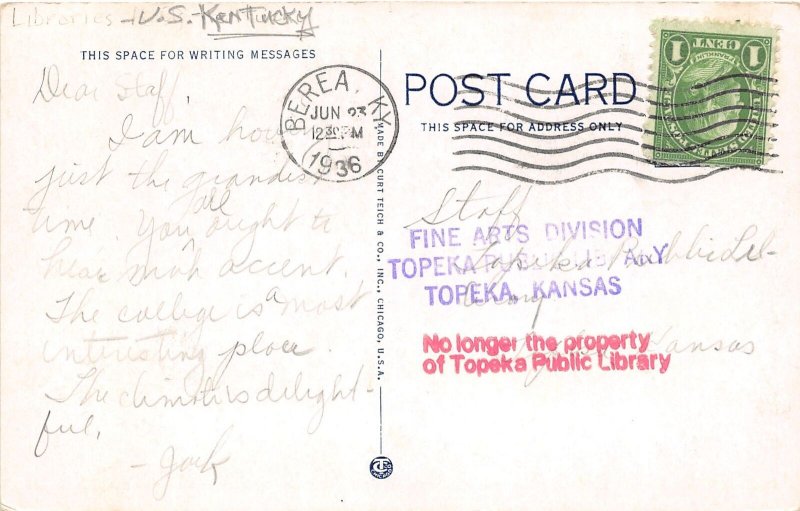 Libraries - U.S. - Kentucky
THIS SPACE FOR WRITING MESSAGES
Dear Staff,
I am hav
just the grandest
time. You all ought to
hear mah accent.
The college is a most
interesting place.
The climate is delight-
ful.
- Jack
BEREA, KY.
JUN 23
12 30 PM
1936
MADE BY CURT TEICH & CO., INC., CHICAGO, U.S.A.
CT
POST CARD
THIS SPACE FOR ADDRESS ONLY
1 CENT 1
Staff
Topeka Public Lib-
rary
Kansas
FINE ARTS DIVISION
TOPEKA PUBLIC LIBRARY
TOPEKA, KANSAS
No longer the property
of Topeka Public Library